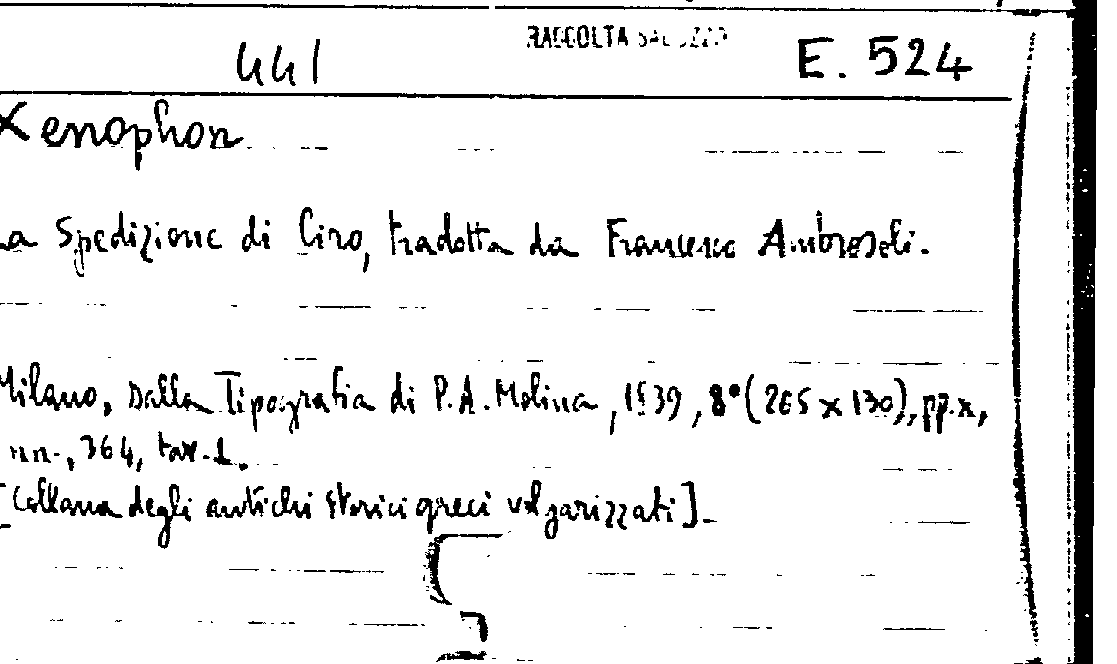 RACCOLTA SALUZZO
441 E. 524
Xenophon
La Spedizione di Ciro, tradotta da Francesco Ambrosoli.
Milano, Dalla Tipografia di P.A. Molina, 1839, 8° (205 x 130), pp. x,
nn., 364, tav. 1.
[Collana degli antichi storici greci volgarizzati].